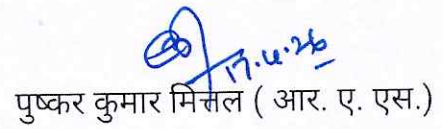 17.4.26
पुष्कर कुमार मित्तल ( आर. ए. एस.)